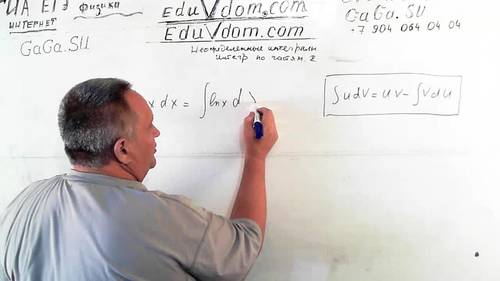 ИА ЕГЭ физики
ИНТЕРНЕТ
GaGa.SU
EduVdom.com
EduVdom.com
Неопределенные интегралы
Интегр по частям. 2
GaGa.SU
+7 904 064 04 04
x dx = ∫ lnx d
∫udV = uV - ∫Vdu